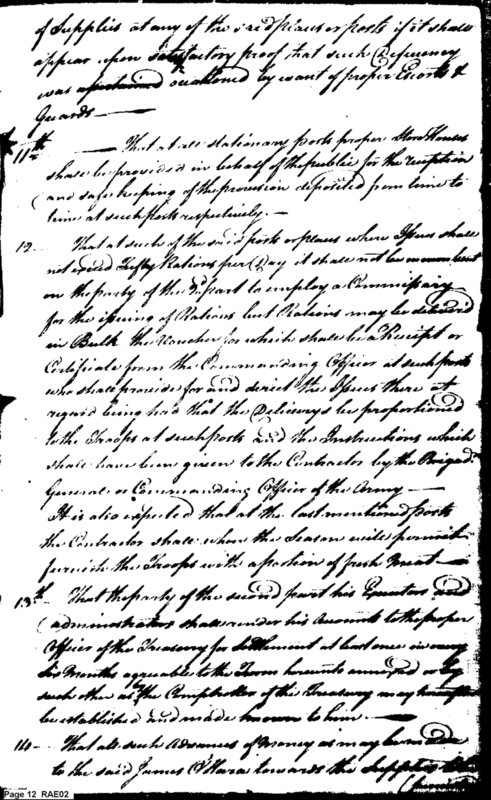 of Supplies at any of the said places or posts if it shall
appear upon satisfactory proof that such Deficiency
was occasioned by want of proper Escorts &
Guards —
11th — That at all stationary posts proper Store Houses
shall be provided in behalf of the public for the reception
and safe keeping of the provision deposited from time to
time at such posts respectively. —
12 — That at such of the said posts or places where Issues shall
not exceed Fifty Rations per Day it shall not be incumbent
on the party of the 2d part to employ a Commissary
for the issuing of Rations but Rations may be delivered
in Bulk the Voucher for which shall be a Receipt or
Certificate from the Commanding Officer at such posts
who shall provide for and direct the Issues there at
regard being had that the Deliverys be proportioned
to the Troops at such posts and the Instructions which
shall have been given to the Contractor by the Brigadr
General or Commanding Officer of the Army —
It is also expected that at the last mentioned posts
the Contractor shall when the Season will permit
furnish the Troops with a portion of fresh Meat —
13th — That the party of the second part his Executors and
administrators shall render his Accounts to the proper
Officer of the Treasury for Settlement at least once in every
Six Months agreeable to the Form hereunto annexed or by
such other as the Comptroller of the Treasury may
be established and made known to him —
14 — That all such Advances of Money as may be made
to the said James O'Hara towards the Supplies
Page 12 RAE02